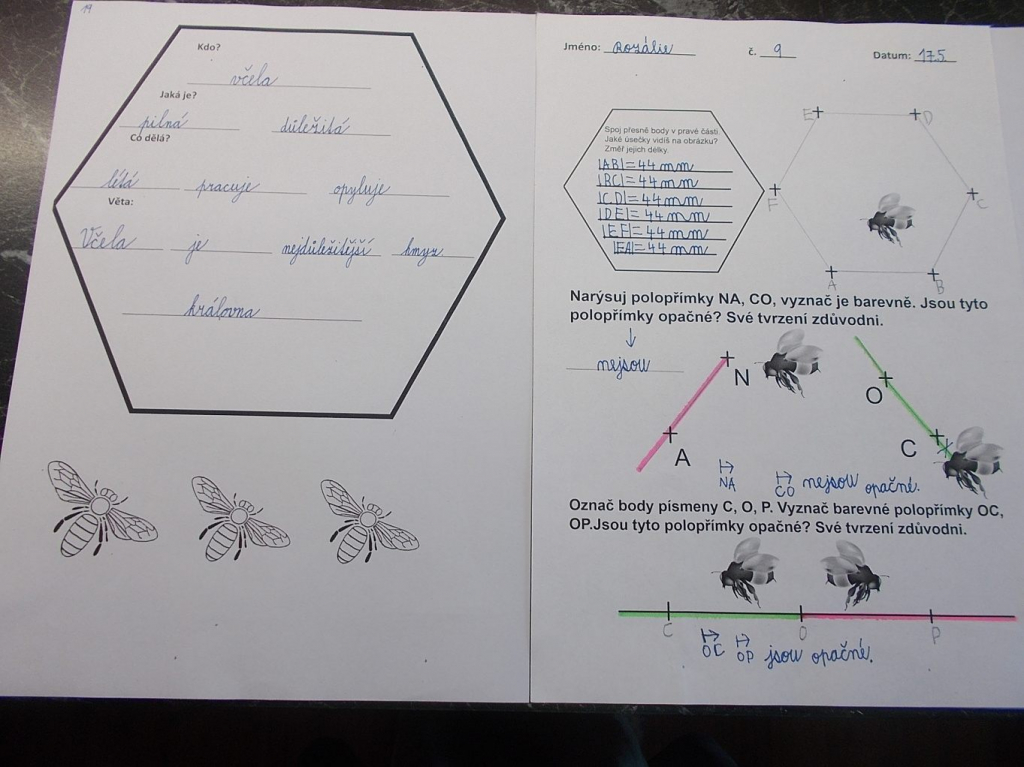 19
Kdo?
včela
Jaká je?
pilná důležitá
Co dělá?
létá pracuje opyluje
Věta:
Včela je nejdůležitější hmyz
královna
Jméno: Rozálie č. 9 Datum: 17.5
Spoj přesně body v pravé části.
Jaké úsečky vidíš na obrázku?
Změř jejich délky.
|AB|=44 mm
|BC|=44 mm
|CD|=44 mm
|DE|=44 mm
|EF|=44 mm
|FA|=44 mm
E D
F C
A B
Narýsuj polopřímky NA, CO, vyznač je barevně. Jsou tyto
polopřímky opačné? Své tvrzení zdůvodni.
↓
nejsou
N
O
A
C
↦NA ↦CO nejsou opačné.
Označ body písmeny C, O, P. Vyznač barevné polopřímky OC,
OP.Jsou tyto polopřímky opačné? Své tvrzení zdůvodni.
C O P
↦OC ↦OP jsou opačné.